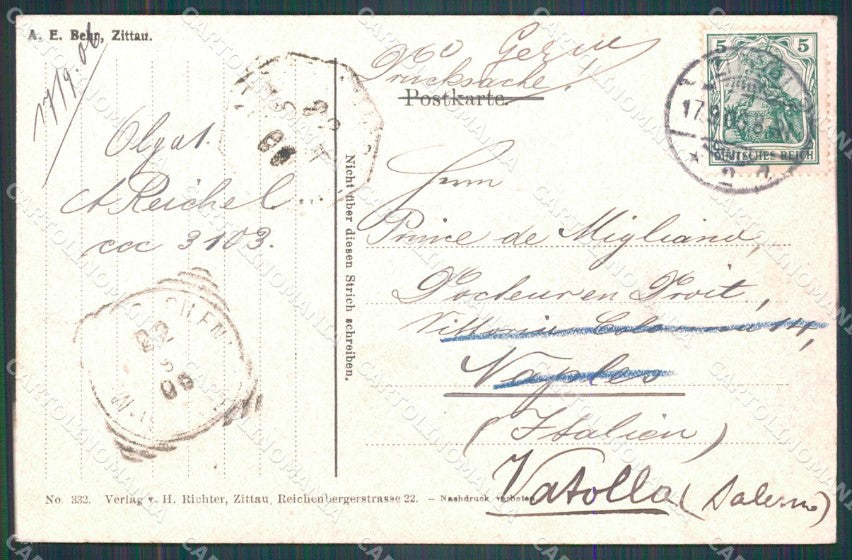 A. E. Behr, Zittau.
17/9.06.
Olga t.
A Reichel
ccc 3103.
Drucksache!
Postkarte.
5 5
DEUTSCHES REICH
17.9.06
Herrn
Prince de Migliano,
Docteur en Droit,
Vittoria Colonna 14,
Naples
(Italien)
Vatolla (Salerno)
Nicht über diesen Strich schreiben.
22
06
No. 332. Verlag v. H. Richter, Zittau, Reichenbergerstrasse 22. – Nachdruck verboten.
CARTOLINOMANIA